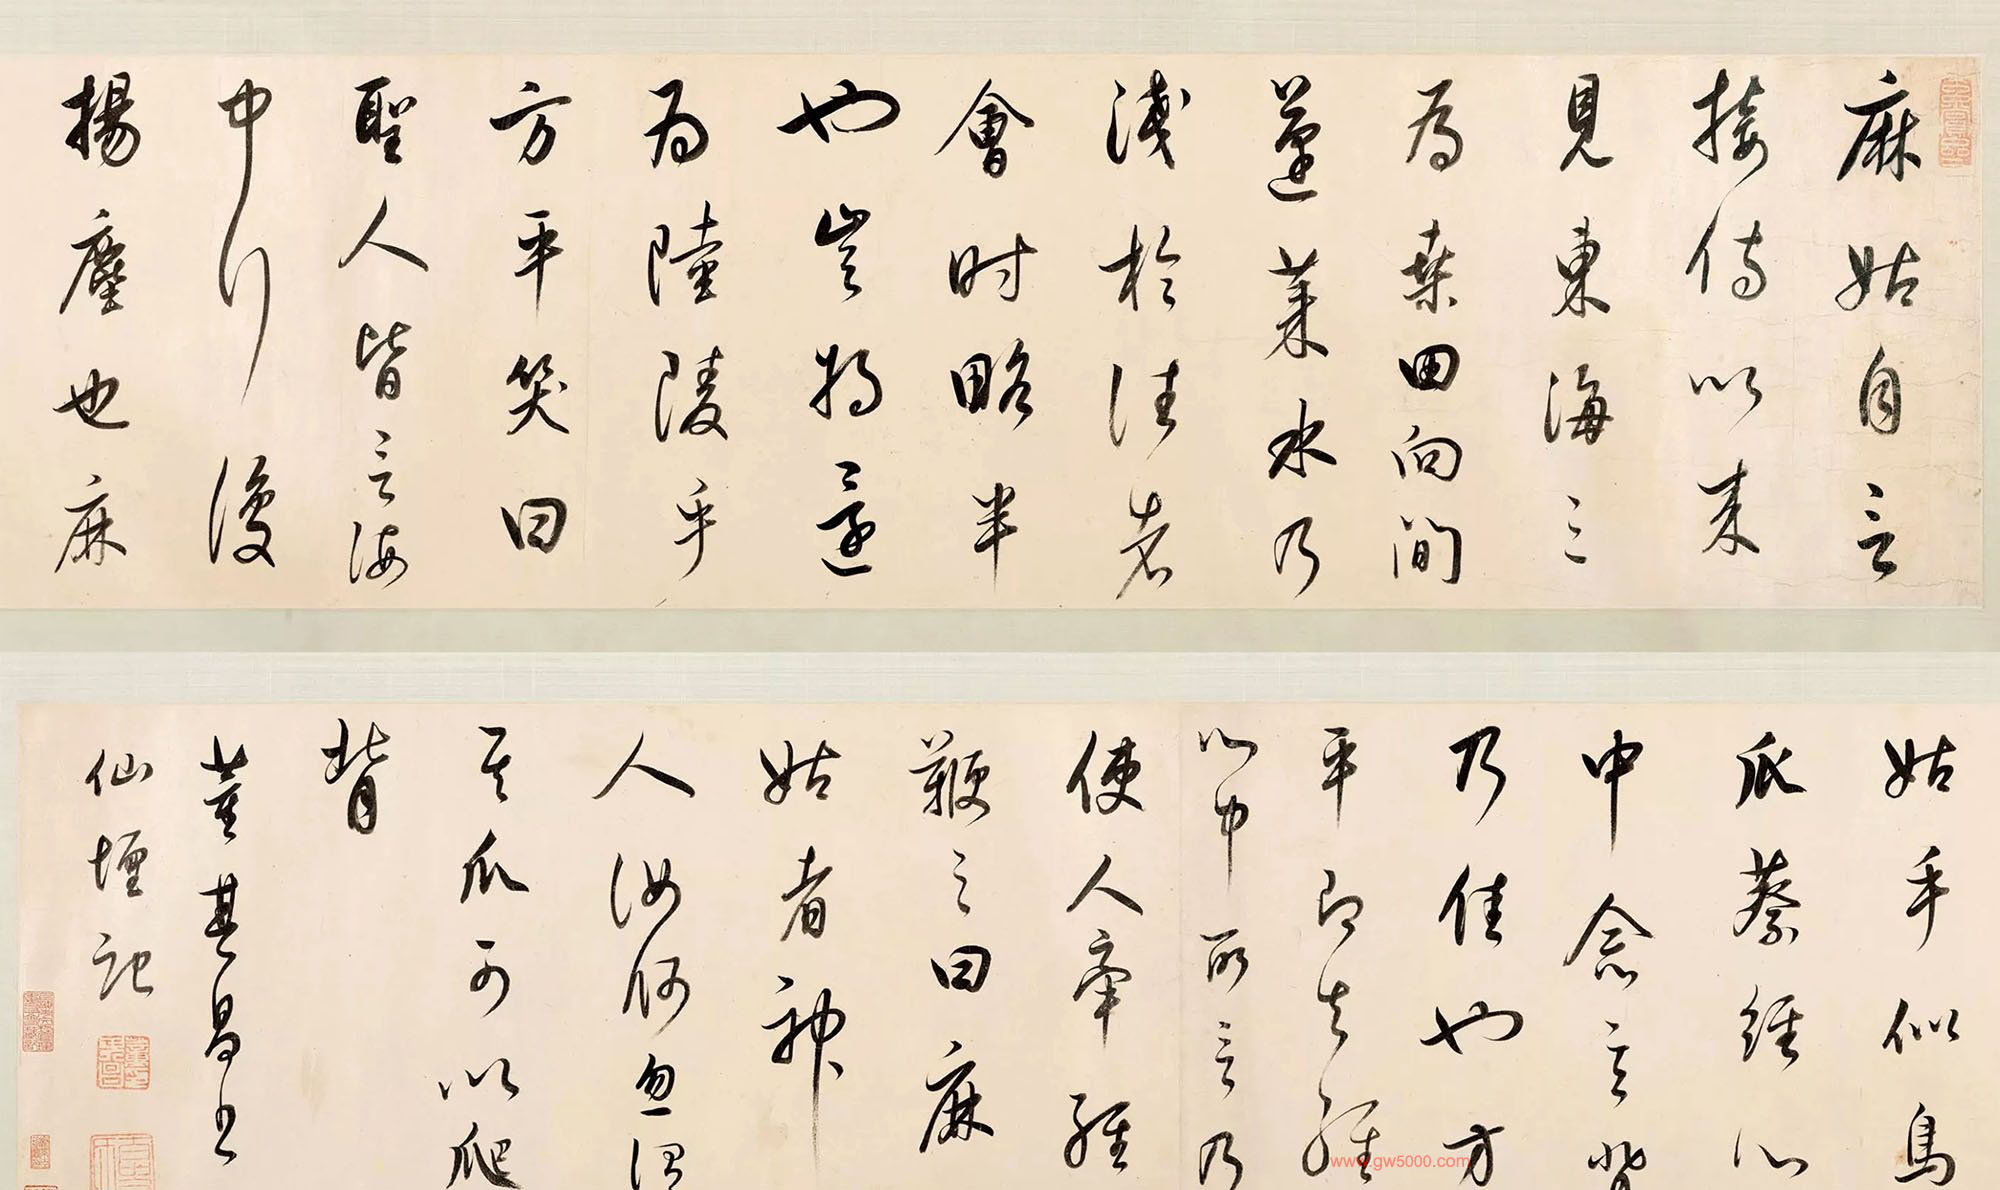 麻姑自言
接侍以来
見東海三
為桑田向間
蓬莱水乃
淺於往者
會时略半
也豈将還
为陸陵乎
方平笑曰
聖人皆言海
中行復
揚塵也麻
姑手似鳥
爪蔡經心
中念言背
乃佳也方
平即知經
心中所言乃
使人牽經
鞭之曰麻
姑者神
人汝何忽謂
其爪可以爬
背
董其昌书
仙壇記
www.gw5000.com